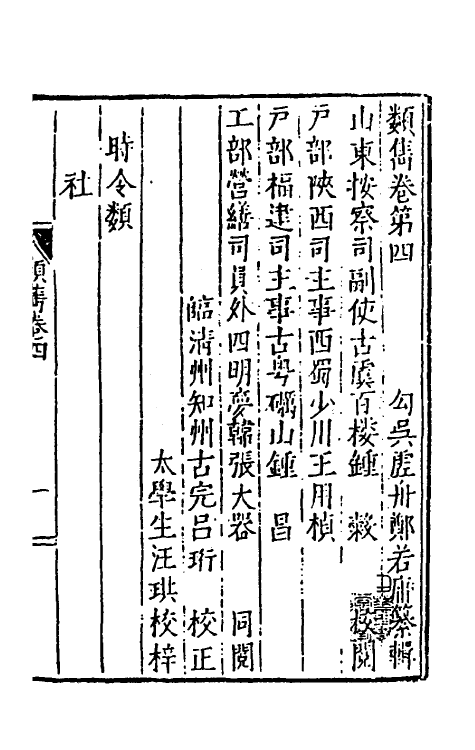 類雋卷第四　勾吳虛舟鄭若庸纂輯
山東按察司副使古虞百樓鍾穀校閱
戸部陝西司主事西蜀少川王用楨
戸部福建司主事古粤礪山鍾昌
工部營繕司員外四明夢韓張大器同閱
臨清州知州古完呂珩校正
太學生汪珙校梓
時令類
社
類雋卷四
一